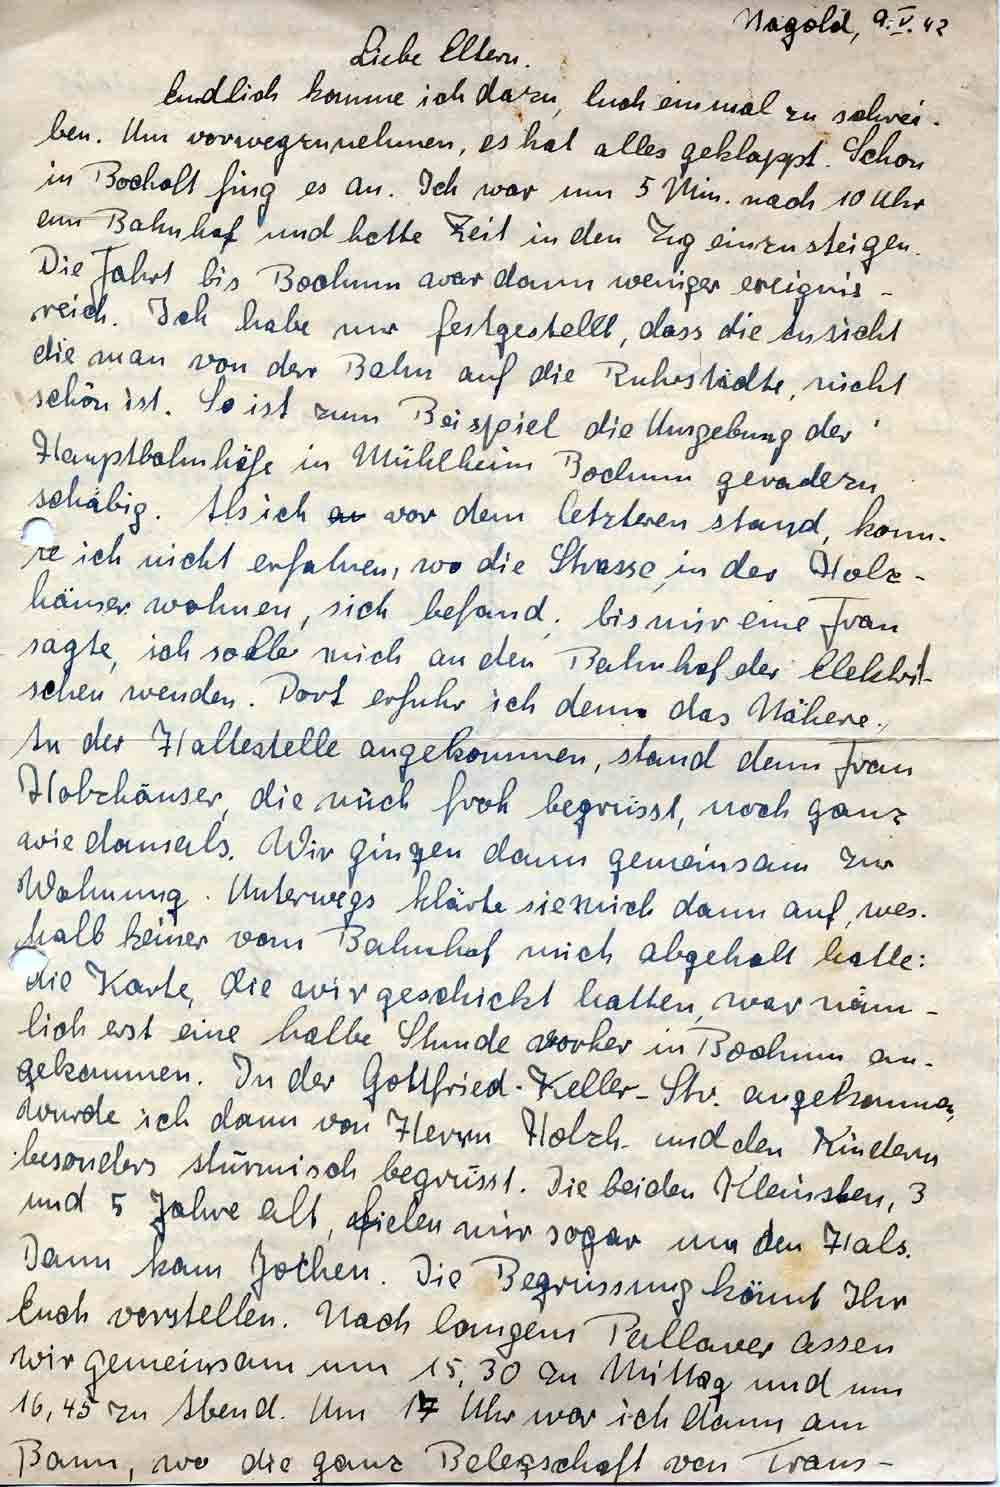 Nagold, 9.V.42
Liebe Eltern.
Endlich komme ich dazu, Euch einmal zu schrei-
ben. Um vorwegzunehmen, es hat alles geklappt. Schon
in Bocholt fing es an. Ich war um 5 Min. nach 10 Uhr
am Bahnhof und hatte Zeit in den Zug einzusteigen.
Die Fahrt bis Bochum war dann weniger ereignis-
reich. Ich habe nur festgestellt, dass die Ansicht
die man von der Bahn auf die Ruhrstädte, nicht
schön ist. So ist zum Beispiel die Umgebung der
Hauptbahnhöfe in Mühlheim Bochum geradezu
schäbig. Als ich vor dem letzteren stand, konn-
te ich nicht erfahren, wo die Strasse, in der Holz-
häuser wohnen, sich befand, bis mir eine Frau
sagte, ich solle mich an den Bahnhof der Elektri-
schen wenden. Dort erfuhr ich denn das Nähere.
An der Haltestelle angekommen, stand denn Frau
Holzhäuser, die mich froh begrüsst, noch ganz
wie damals. Wir gingen dann gemeinsam zur
Wohnung. Unterwegs klärte sie mich dann auf, wes-
halb keiner vom Bahnhof mich abgeholt hatte:
die Karte, die wir geschickt hatten, war näm-
lich erst eine halbe Stunde vorher in Bochum an-
gekommen. In der Gottfried-Keller-Str. angekommen,
wurde ich dann von Herrn Holzh. und den Kindern
besonders stürmisch begrüsst. Die beiden Kleinsten, 3
und 5 Jahre alt, fielen mir sogar um den Hals.
Dann kam Jochen. Die Begrüssung könnt Ihr
Euch vorstellen. Nach langem Pallaver assen
wir gemeinsam um 15,30 zu Mittag und um
16,45 zu Abend. Um 17 Uhr war ich dann am
Bann, wo die ganz Belegschaft von Trans-